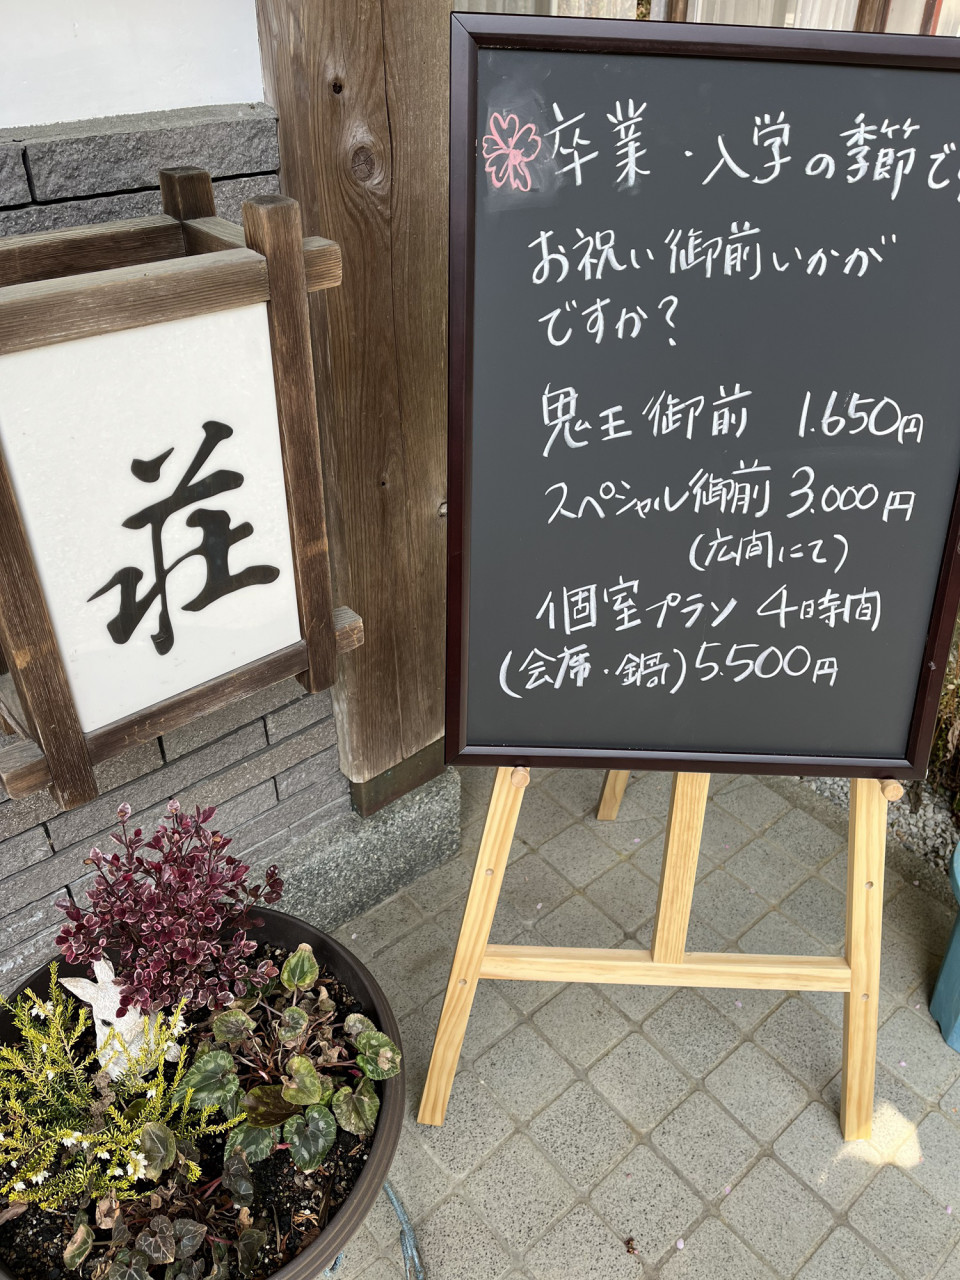 荘
卒業・入学の季節で
お祝い御前いかが
ですか？
鬼王御前 1.650円
スペシャル御前 3.000円
(広間にて)
個室プラン 4時間
(会席・鍋) 5.500円